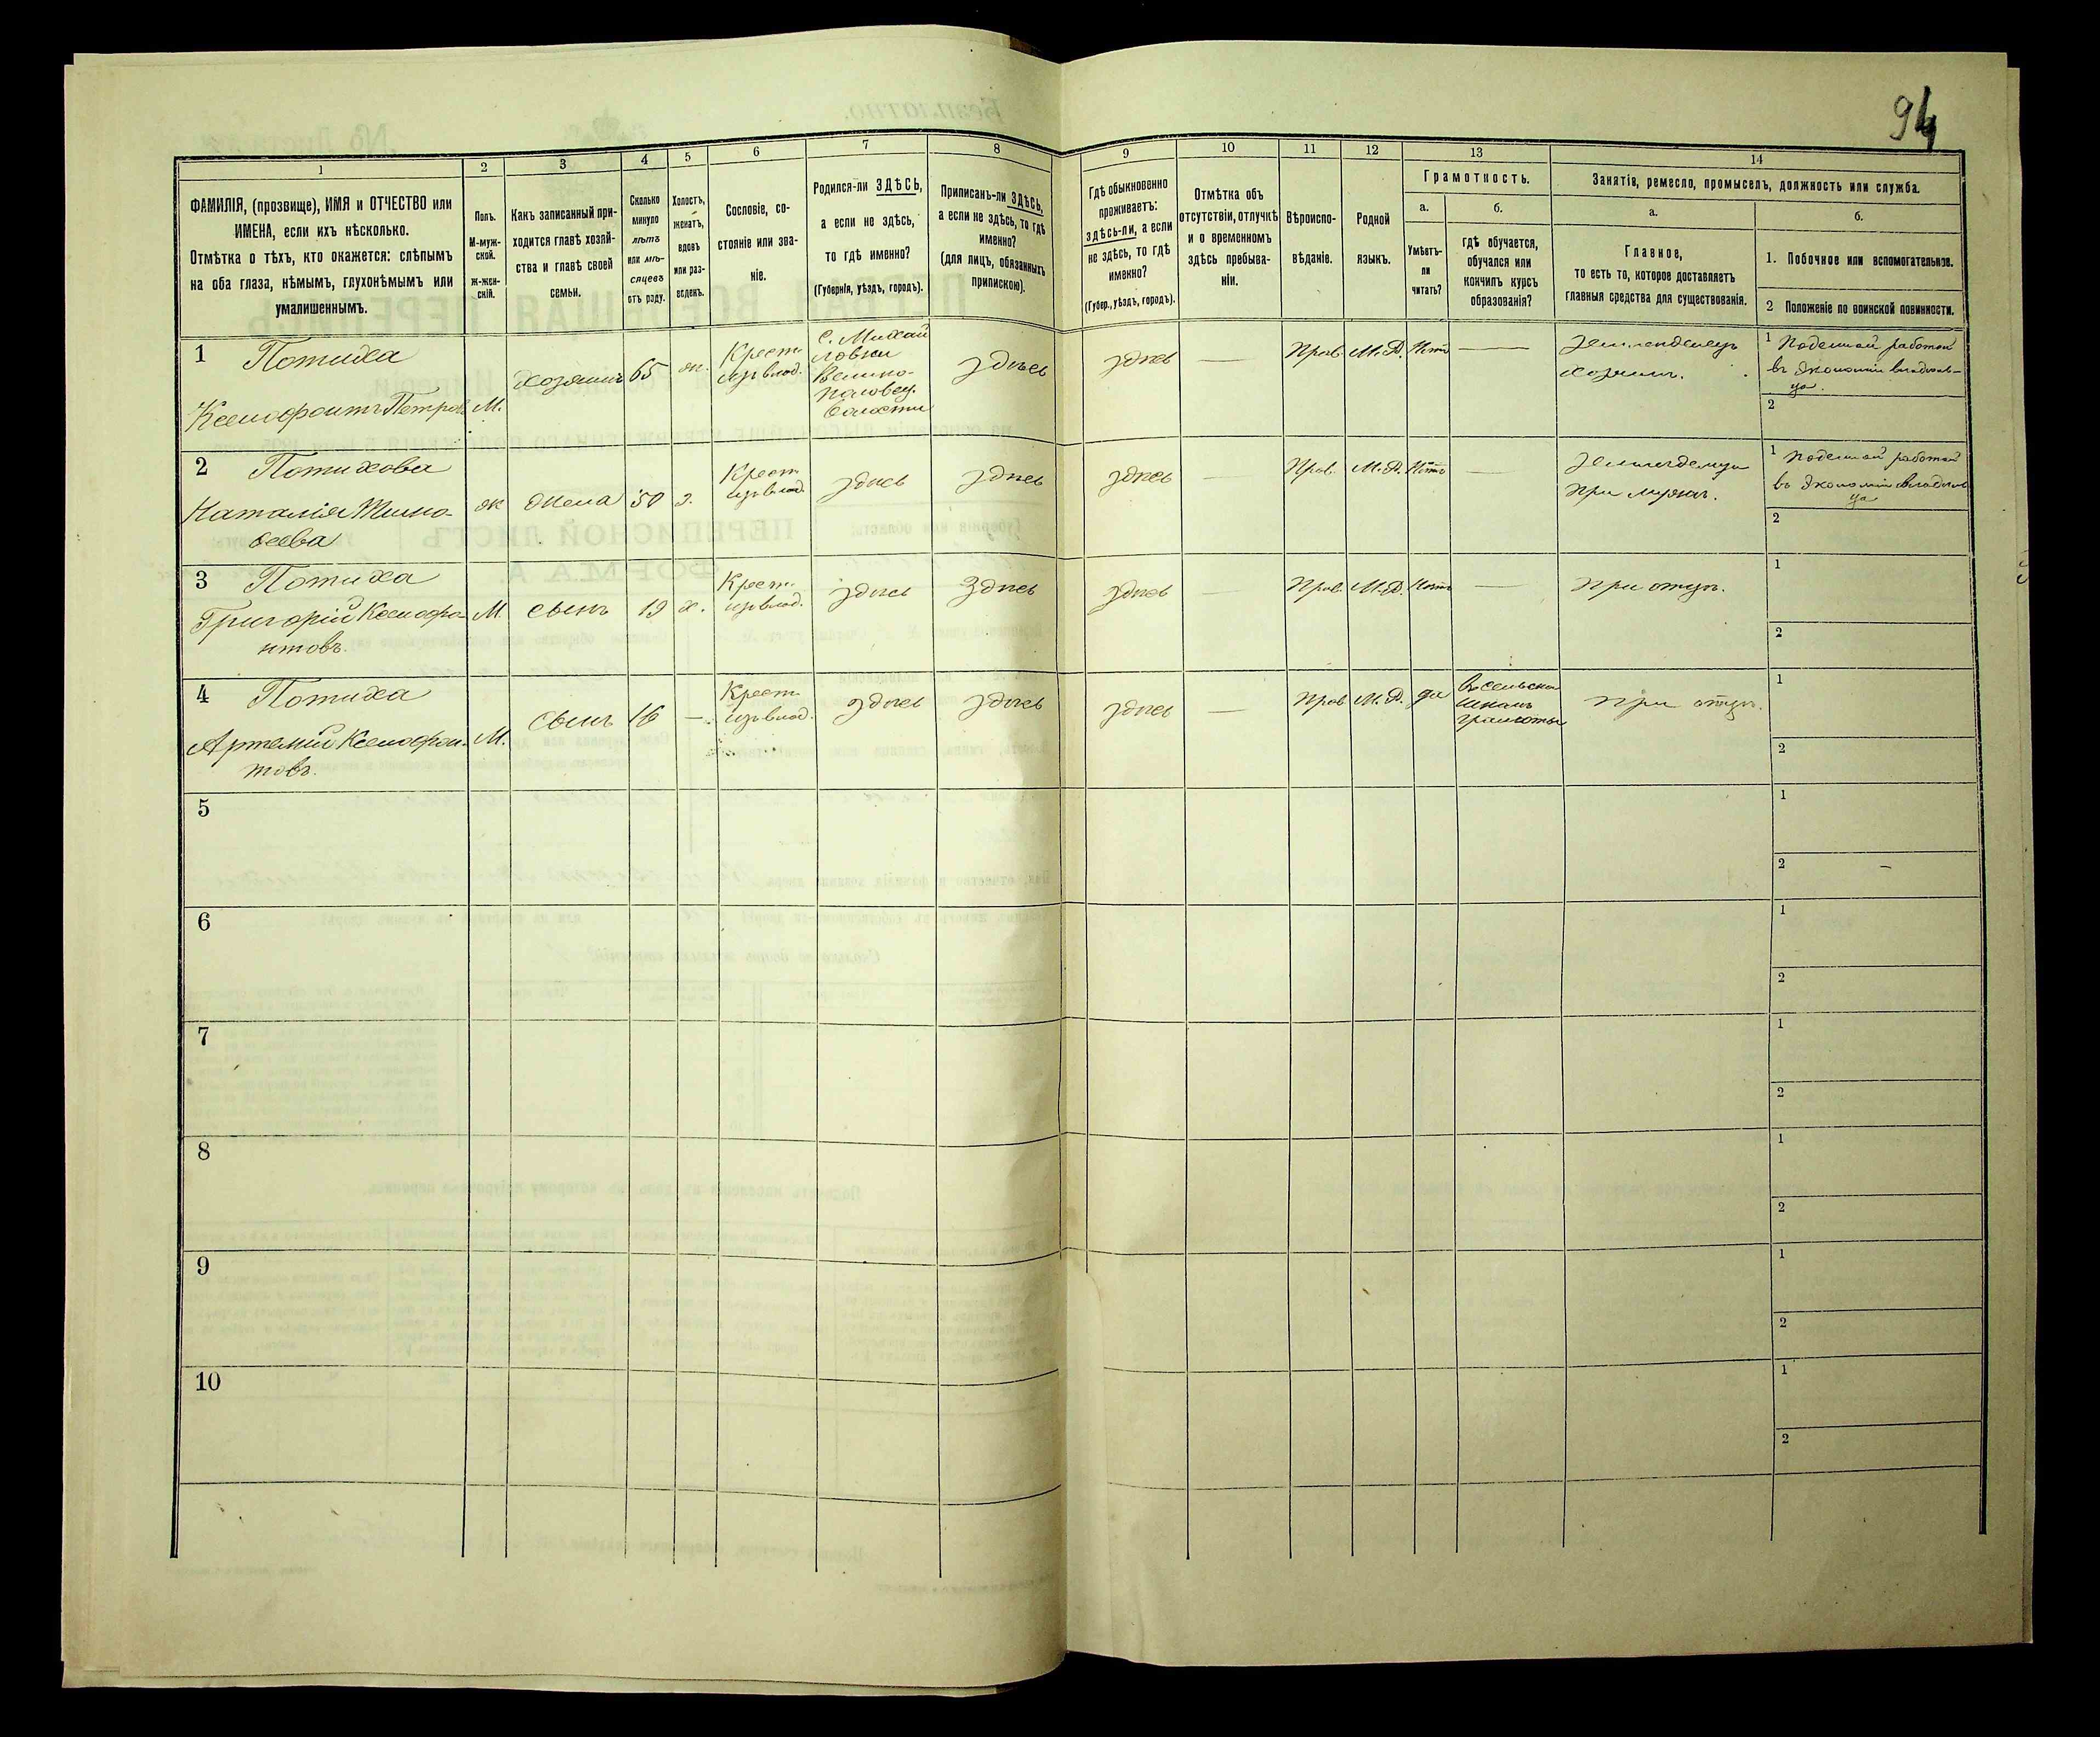 94
1
2
3
4
5
6
7
8
9
10
11
12
13
14
ФАМИЛІЯ, (прозвище), ИМЯ и ОТЧЕСТВО или
ИМЕНА, если ихъ нѣсколько.
Отмѣтка о тѣхъ, кто окажется: слѣпымъ
на оба глаза, нѣмымъ, глухонѣмымъ или
умалишеннымъ.
Полъ.
М-муж-
ской.
Ж-жен-
скій.
Какъ записанный при-
ходится главѣ хозяй-
ства и главѣ своей
семьи.
Сколько
минуло
лѣтъ
или мѣ-
сяцевъ
отъ роду.
Холостъ,
женатъ,
вдовъ
или раз-
веденъ.
Сословіе, со-
стояніе или зва-
ніе.
Родился-ли ЗДѢСЬ,
а если не здѣсь,
то гдѣ именно?
(Губернія, уѣздъ, городъ).
Приписанъ-ли ЗДѢСЬ,
а если не здѣсь, то гдѣ
именно?
(для лицъ, обязанныхъ
припискою).
Гдѣ обыкновенно
проживаетъ:
здѣсь-ли, а если
не здѣсь, то гдѣ
именно?
(Губер., уѣздъ, городъ).
Отмѣтка объ
отсутствіи, отлучкѣ
и о временномъ
здѣсь пребыва-
ніи.
Вѣроиспо-
вѣданіе.
Родной
языкъ.
Грамотность.
а.
Умѣетъ-
ли
читать?
б.
гдѣ обучается,
обучался или
кончилъ курсъ
образованія?
Занятія, ремесло, промыселъ, должность или служба.
а.
Главное,
то есть то, которое доставляетъ
главныя средства для существованія.
б.
1. Побочное или вспомогательное.
2 Положеніе по воинской повинности.
1 Потиха
Ксенофонтъ Петровъ
М.
хозяинъ
65
ж.
Крест.
изъ влад.
С. Михай
ловки
Велико-
Половец.
волости
здѣсь
здѣсь
—
Прав.
М.Р.
Нѣтъ
—
Земледелецъ
хозяинъ.
1 Поденной работой
въ экономіи владель-
ца.
2
2 Потихова
Наталія Тимо-
ѳеева
ж
жена
50
з.
Крест
изъ влад.
здѣсь
здѣсь
здѣсь
—
Прав.
М.Р.
Нѣтъ
—
при мужѣ.
1 Поденной работой
въ экономіи владель
ца
2
3 Потиха
Григорій Ксенофо-
нтовъ
М.
сынъ
19
х.
Крест.
изъ влад.
здѣсь
здѣсь
здѣсь
—
Прав.
М.Р.
Нѣтъ
—
при отцѣ.
1
2
4 Потиха
Артемій Ксенофон-
товъ.
М.
сынъ
16
—
Крест.
изъ влад.
здѣсь
здѣсь
здѣсь
—
Прав
М.Р.
да
въ сельской
школѣ
грамоты
при отцѣ.
1
2
5
1
2 –
6
1
2
7
1
2
8
1
2
9
1
2
10
1
2